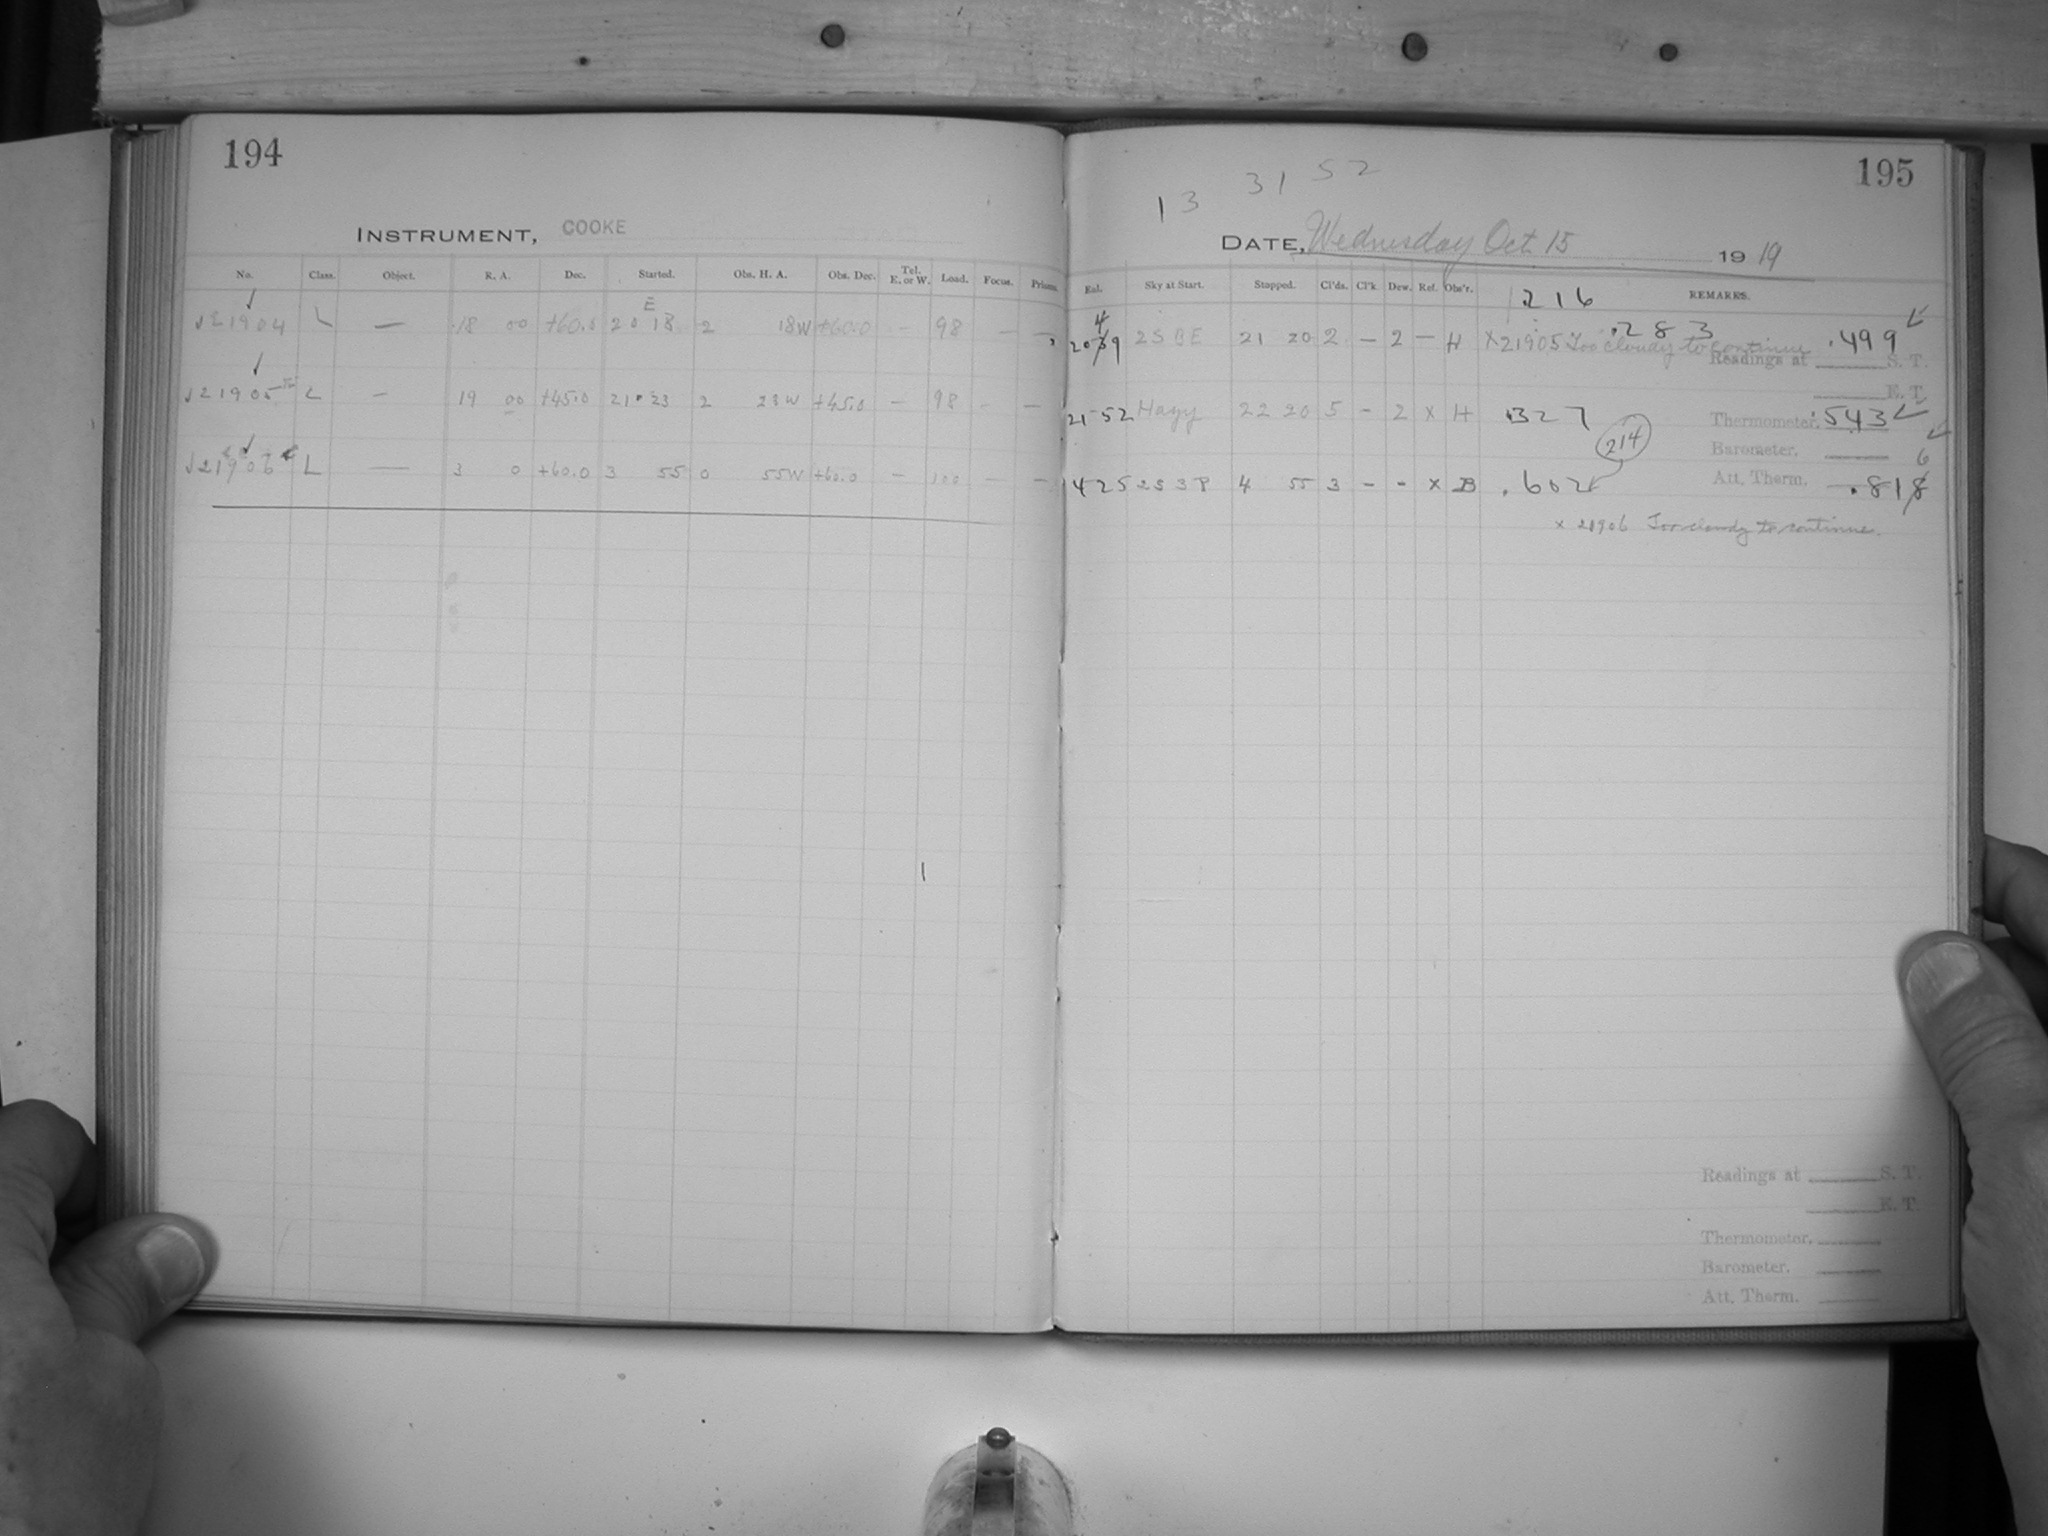 194
INSTRUMENT, COOKE
No. Class. Object. R. A. Dec. Started. Obs. H. A. Obs. Dec. Tel. E. or W. Load. Focus. Prisms.
E
21904 L — 18 00 +60.0 20 18 2 18W +60.0 — 98 —
21905 L — 19 00 +45.0 21 23 2 23W +45.0 — 98 - —
21906 L — 3 0 +60.0 3 55 0 55W +60.0 — 100 — —
195
13 31 52
DATE, Wednesday Oct 15 1919
Sky at Start. Stopped. Cl'ds. Cl'k Dew. Rel. Obs'r. REMARKS.
.216
4
2039 21 20 2 — 2 — H X21905 Too cloudy to continue .283 .499
Readings at S. T.
E. T.
21 52 Hazy 22 20 5 - 2 X H .327 Thermometer. .543
214
Barometer.
6
4 25 4 55 3 - - x B .602 Att. Therm. .818
x 21906 Too cloudy to continue.
Readings at S. T.
E. T.
Thermometer.
Barometer.
Att. Therm.